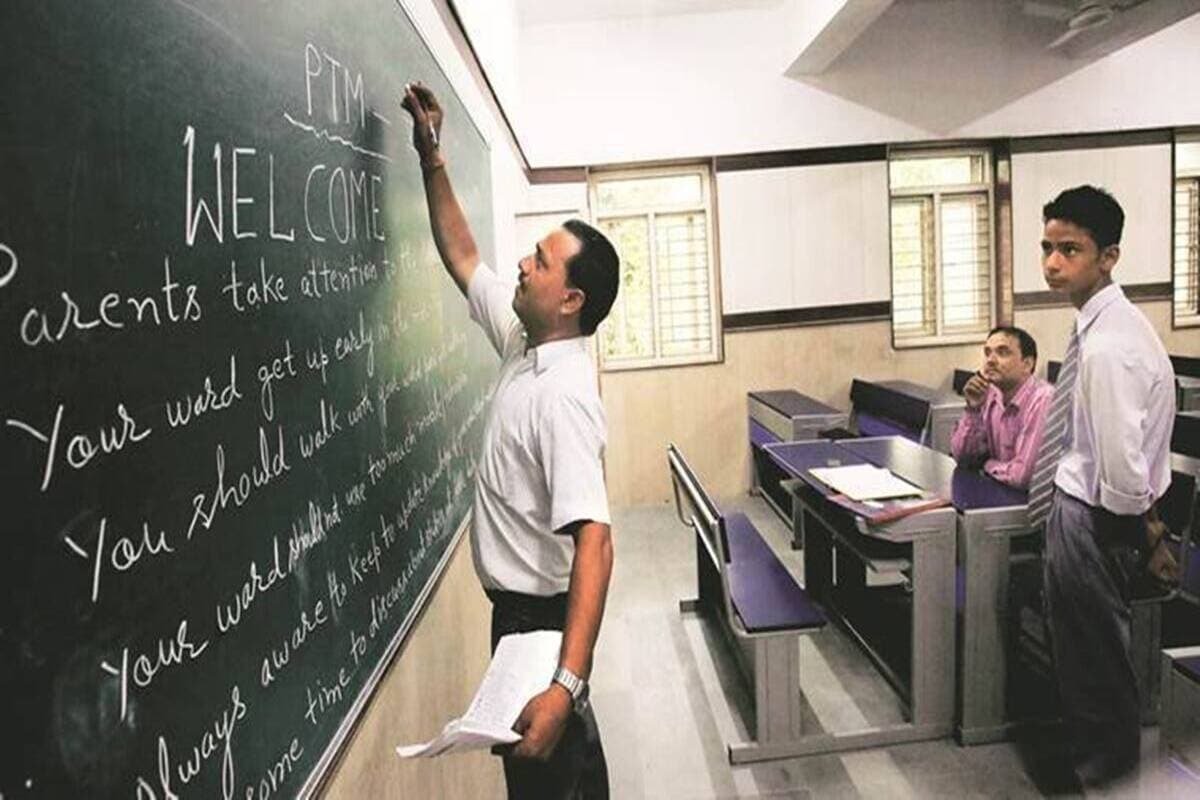 PTM -
WELCOME
Parents take attention to the
Your ward get up early in the
You should walk with your
Your ward should not use too much mobile phone
Always aware to keep to update
some time to discuss about